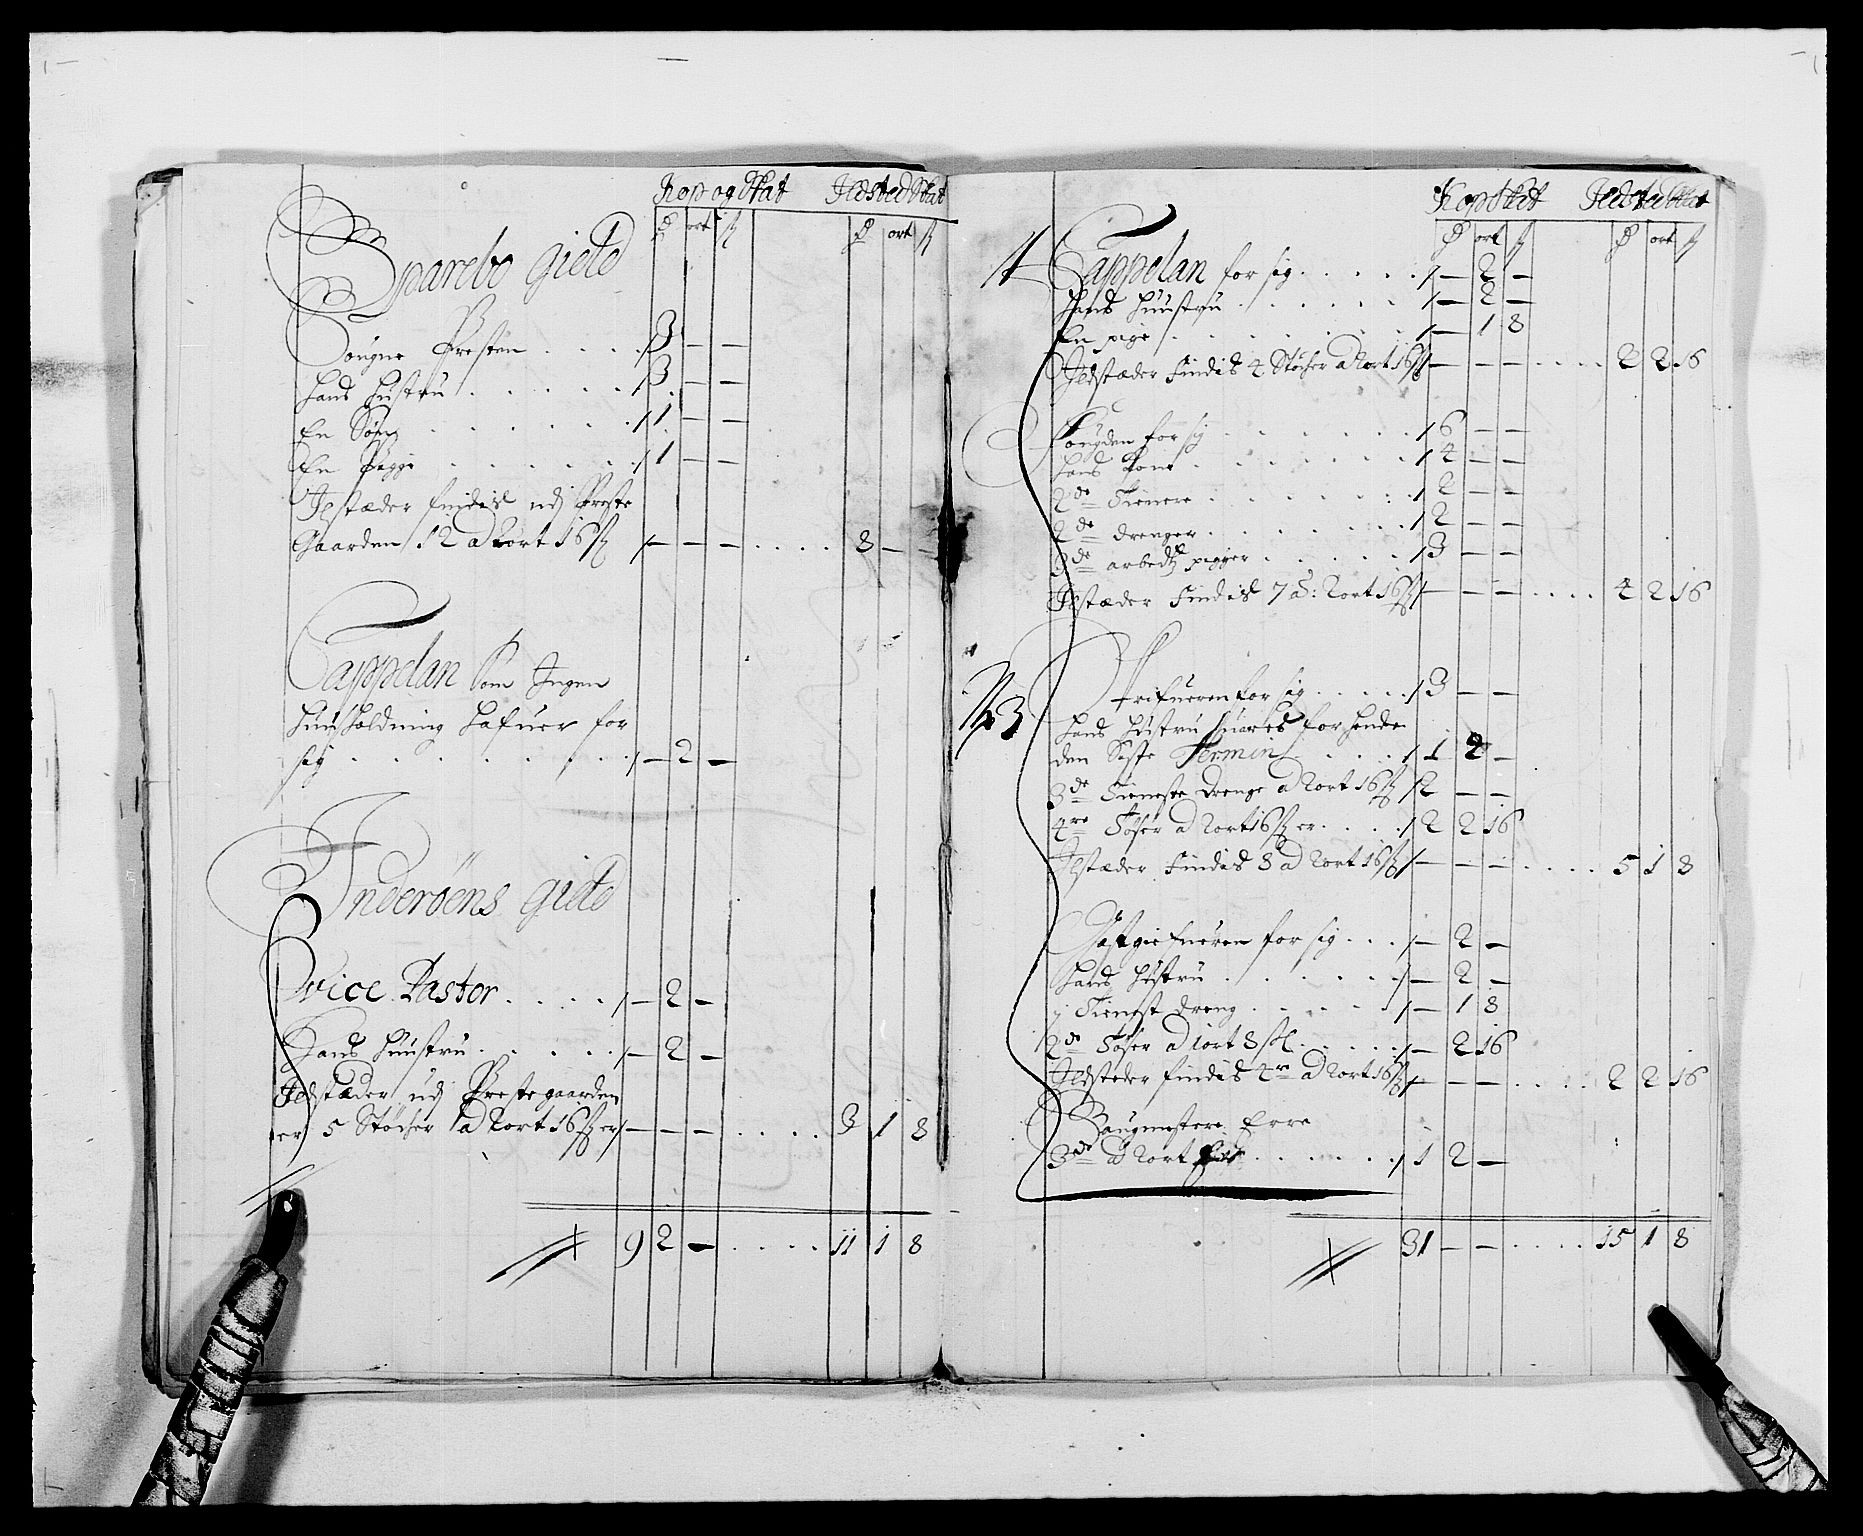 Kop og Skat Ildsted Skat
ort ß ort ß
Sparebo gield
Sougne Presten . . . . 3 — —
Hans Hustru . . . . . 3 — —
En Søn . . . . . . 1 — —
En Pige . . . . . . 1 — —
Ilstæder findis udj Preste
Gaarden 12 a 2 ort 16 ß — — — . . . . 8 — —
Cappelan som Ingen
Huusholdning hafuer for
sig . . . . . . . . — 2 —
Inderöens gield
Vice Pastor . . . . — 2 —
Hans Huustru . . . . . — 2 —
Ildstæder udj Prestegaarden
er 5 Stöcher a 2 ort 16 ß er — — — . . . . 3 1 8
9 2 — . . . . 11 1 8
Kop Skat Ildsted Skat
ort ß ort ß
Cappelan for sig . . . . . — 2 —
Hands Huustru . . . . . . — 2 —
En pige . . . . . . . — 1 8
Ildstæder Findis 4 Stöcher a 2 ort 16 ß — — — . . . . 2 2 16
Fougden for sig . . . . . . 6 — —
Hans Kone . . . . . . . 4 — —
2de Tienere . . . . . . . 2 — —
2de drenger . . . . . . . 2 — —
3de arbeds pigger . . . . . 3 — —
Ilstæder Findis 7 a: 2 ort 16 ß — — — . . . . 4 2 16
N 3
Skrifueren for sig . . . . . 3 — —
Hans Hustru suares for hende
den Siste Termin . . . . 1 2 —
3de Tieneste Drenge a 2 ort 16 ß 2 — —
4re Töser a 2 ort 16 ß er . . . . 2 2 16
Ilstæder Findis 8 a 2 ort 16 ß — — — . . . . 5 1 8
Gastgiefueren for sig . . . — 2 —
Hans Hustru . . . . . . — 2 —
1 Tienest dreng . . . . . — 1 8
2de Töser a 1 ort 8 ß . . . . . — 2 16
Ildsteder findis 4re a 2 ort 16 ß — — — . . . . 2 2 16
Laugmestere Erre
3de a 2 ort . . . . . . 1 2 —
31 — — . . . . 15 1 8